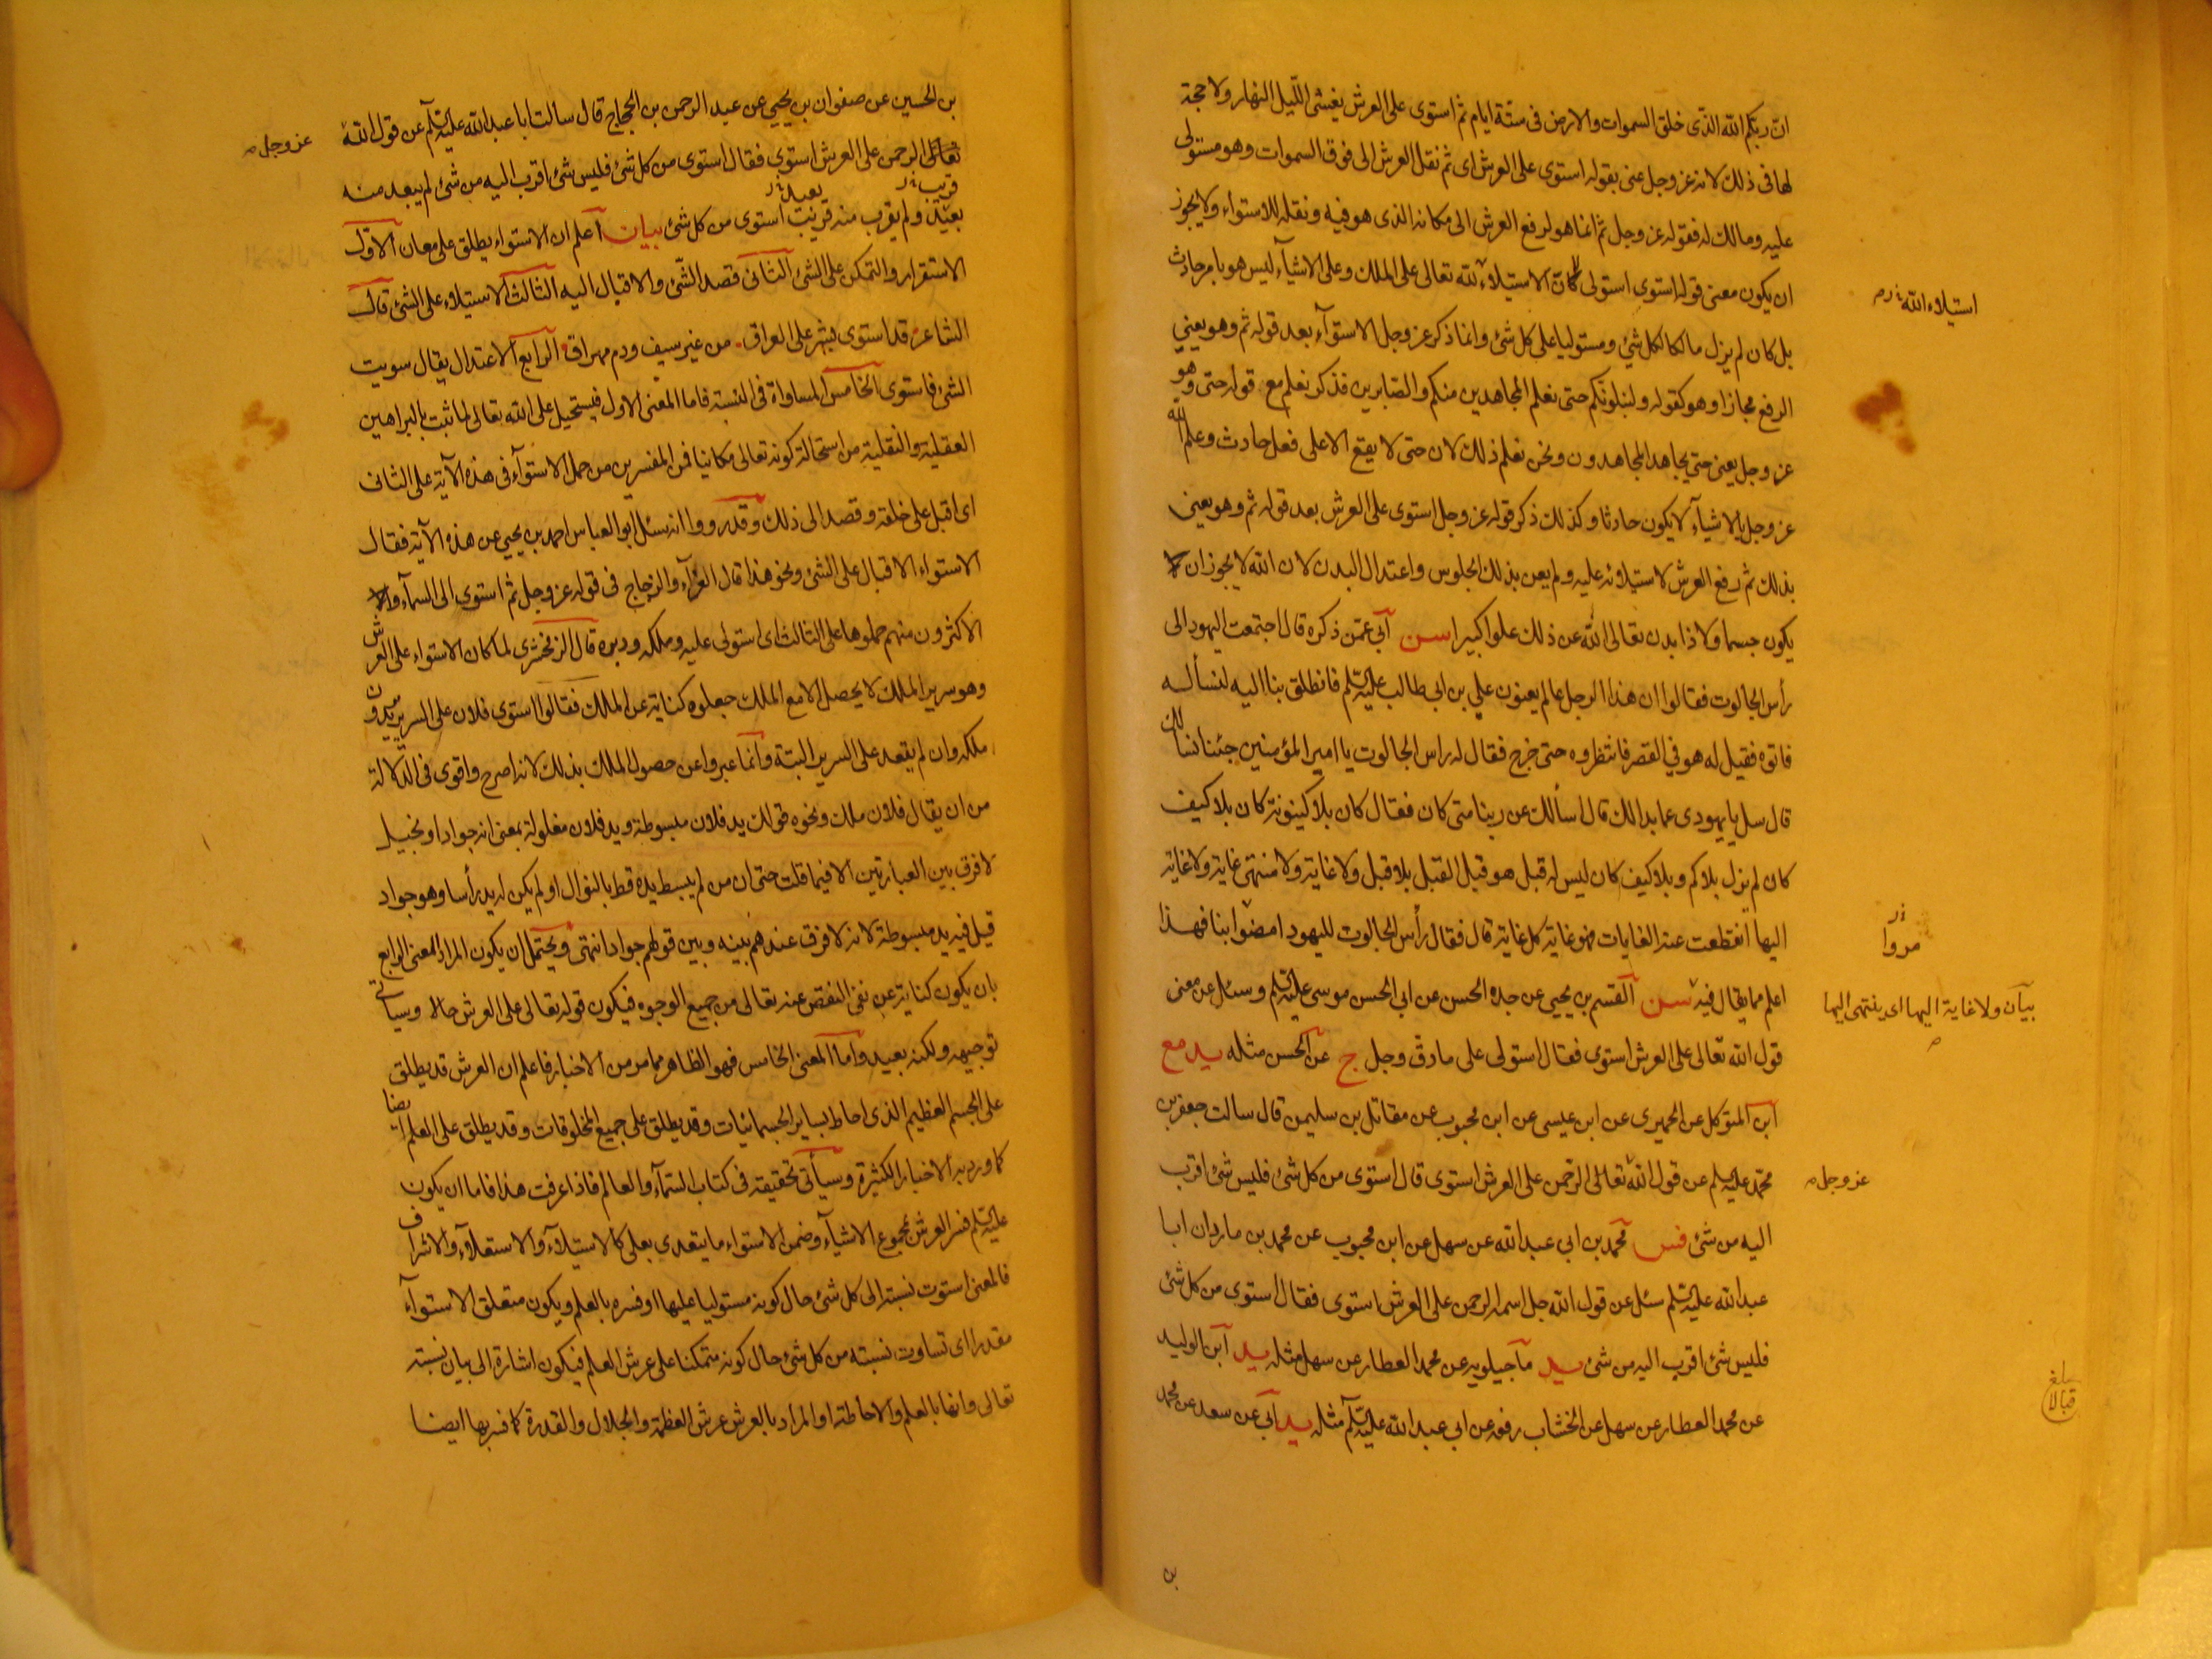 ان ربكم الله الذى خلق السموات والارض فى ستة ايام ثم استوى على العرش يغشى الليل النهار ولا حجة
لها فى ذلك لانه عز وجل عنى بقوله استوى على العرش اى ثم نقل العرش الى فوق السموات وهو مستولى
عليه ومالك له فقوله عز وجل ثم انما هو لرفع العرش الى مكانه الذى هو فيه ونقله للاستواء ولا يجوز
ان يكون معنى قوله استوى استولى لان الاستيلاء لله تعالى على الملك وعلى الاشيآء ليس هو بامر حادث
استيلاء الله
بل كان لم يزل مالكا لكل شئ ومستوليا على كل شئ وانما ذكر عز وجل الاستوآء بعد قوله ثم وهو يعنى
الرفع مجازا وهو كقوله ولنبلونكم حتى نعلم المجاهدين منكم والصابرين فذكر نعلم مع قوله حتى وهو
عز وجل يعنى حتى يجاهد المجاهدون ونحن نعلم ذلك لان حتى لا يقع الا على فعل حادث وعلم الله
عز وجل بالاشيآء لا يكون حادثا وكذلك ذكر قوله عز وجل استوى على العرش بعد قوله ثم وهو يعنى
بذلك ثم رفع العرش لاستيلائه عليه ولم يعن بذلك الجلوس واعتدال البدن لان الله لا يجوز ان
يكون جسما ولا ذا بدن تعالى الله عن ذلك علوا كبيرا سن ابى عمن ذكره قال اجتمعت اليهود الى
رأس الجالوت فقالوا ان هذا الرجل عالم يعنون على بن ابى طالب عليه السلم فانطلق بنا اليه لنسأله
فاتوه فقيل له هو فى القصر فانتظروه حتى خرج فقال له راس الجالوت يا امير المؤمنين جئنا نسألك
قال سل يا يهودى عما بدا لك قال اسألك عن ربنا متى كان فقال كان بلا كينونة كان بلا كيف
كان لم يزل بلا كم وبلا كيف كان ليس له قبل هو قبل القبل بلا قبل ولا غاية ولا منتهى غاية ولا غاية
اليها انقطعت عنه الغايات فهو غاية كل غاية قال فقال رأس الجالوت لليهود امضوا بنا فهذا
مروا
اعلم مما يقال فيه سن القسم بن يحيى عن جده الحسن عن ابى الحسن موسى عليه السلم وسئل عن معنى
بيان ولا غاية اليها اى ينتهى اليها
قول الله تعالى على العرش استوى فقال استولى على ما دق وجل ج عن الحسن مثله يد مع
ابن المتوكل عن الحميرى عن ابن عيسى عن ابن محبوب عن مقاتل بن سليمن قال سالت جعفر بن
محمد عليه السلم عن قول الله تعالى الرحمن على العرش استوى قال استوى من كل شئ فليس شئ اقرب
عز وجل
اليه من شئ فس محمد بن ابى عبد الله عن سهل عن ابن محبوب عن محمد بن مارد ان ابا
عبد الله عليه السلم سئل عن قول الله جل اسمه الرحمن على العرش استوى فقال استوى من كل شئ
فليس شئ اقرب اليه من شئ يد ماجيلويه عن محمد العطار عن سهل مثله يد ابن الوليد
عن محمد العطار عن سهل عن الخشاب رفعه عن ابى عبد الله عليه السلم مثله يد ابى عن سعد عن محمد
بلغ
قبالا
بن
بن الحسين عن صفوان بن يحيى عن عبد الرحمن بن الحجاج قال سالت ابا عبد الله عليه السلم عن قول الله
عز وجل
تعالى الرحمن على العرش استوى فقال استوى من كل شئ فليس شئ اقرب اليه من شئ لم يبعد منه
بعيد ولم يقرب منه قريب استوى من كل شئ بيان اعلم ان الاستواء يطلق على معان الاول
الاستقرار والتمكن على الشئ الثانى قصد الشئ والاقبال اليه الثالث الاستيلاء على الشئ قال
الشاعر قد استوى بشر على العراق من غير سيف ودم مهراق الرابع الاعتدال يقال سويت
الشئ فاستوى الخامس المساواة فى النسبة فاما المعنى الاول فيستحيل على الله تعالى لما ثبت بالبراهين
العقلية والنقلية من استحالة كونه تعالى مكانيا فمن المفسرين من حمل الاستوآء فى هذه الآية على الثانى
اى اقبل على خلقه وقصد الى ذلك وقد رووا انه سئل ابو العباس احمد بن يحيى عن هذه الآية فقال
الاستواء الاقبال على الشئ ونحو هذا قال الفرآء والزجاج فى قوله عز وجل ثم استوى الى السمآء
الاكثرون منهم حملوها على الثالث اى استولى عليه وملكه ودبره قال الزمخشرى لما كان الاستواء على العرش
وهو سرير الملك لا يحصل الا مع الملك جعلوه كناية عن الملك فقالوا استوى فلان على السرير يريدون
ملكه وان لم يقعد على السرير البتة وانما عبروا عن حصول الملك بذلك لانه اصرح واقوى فى الدلالة
من ان يقال فلان ملك ونحوه قولك يد فلان مبسوطة ويد فلان مغلولة بمعنى انه جواد او بخيل
لا فرق بين العبارتين الا فيما قلت حتى ان من لم يبسط يده قط بالنوال او لم يكن له يد رأسا وهو جواد
قيل فيه يد مبسوطة لانه لا فرق عندهم بينه وبين قولهم جواد انتهى ويحتمل ان يكون المراد المعنى الرابع
بان يكون كناية عن نفى النقص عنه تعالى من جميع الوجوه فيكون قوله تعالى على العرش حالا وسياتى
توجيهه ولكنه بعيد واما المعنى الخامس فهو الظاهر مما مر من الاخبار فاعلم ان العرش قد يطلق
على الجسم العظيم الذى احاط بساير الجسمانيات وقد يطلق على جميع المخلوقات وقد يطلق على العلم ايضا
كما ورد به الاخبار الكثيرة وسيأتى تحقيقه فى كتاب السمآء والعالم فاذا عرفت هذا فاما ان يكون
عليه السلم فسر العرش بمجموع الاشيآء وضمن الاستواء ما يتعدى بعلى كالاستيلآء والاستعلآء والاشراف
فالمعنى استوت نسبته الى كل شئ حال كونه مستوليا عليها او فسره بالعلم ويكون متعلق الاستوآء
مقدرا اى تساوت نسبته من كل شئ حال كونه متمكنا على عرش العلم فيكون اشارة الى بيان نسبته
تعالى وانها بالعلم والاحاطة او المراد بالعرش عرش العظمة والجلال والقدرة كما فسر بها ايضا